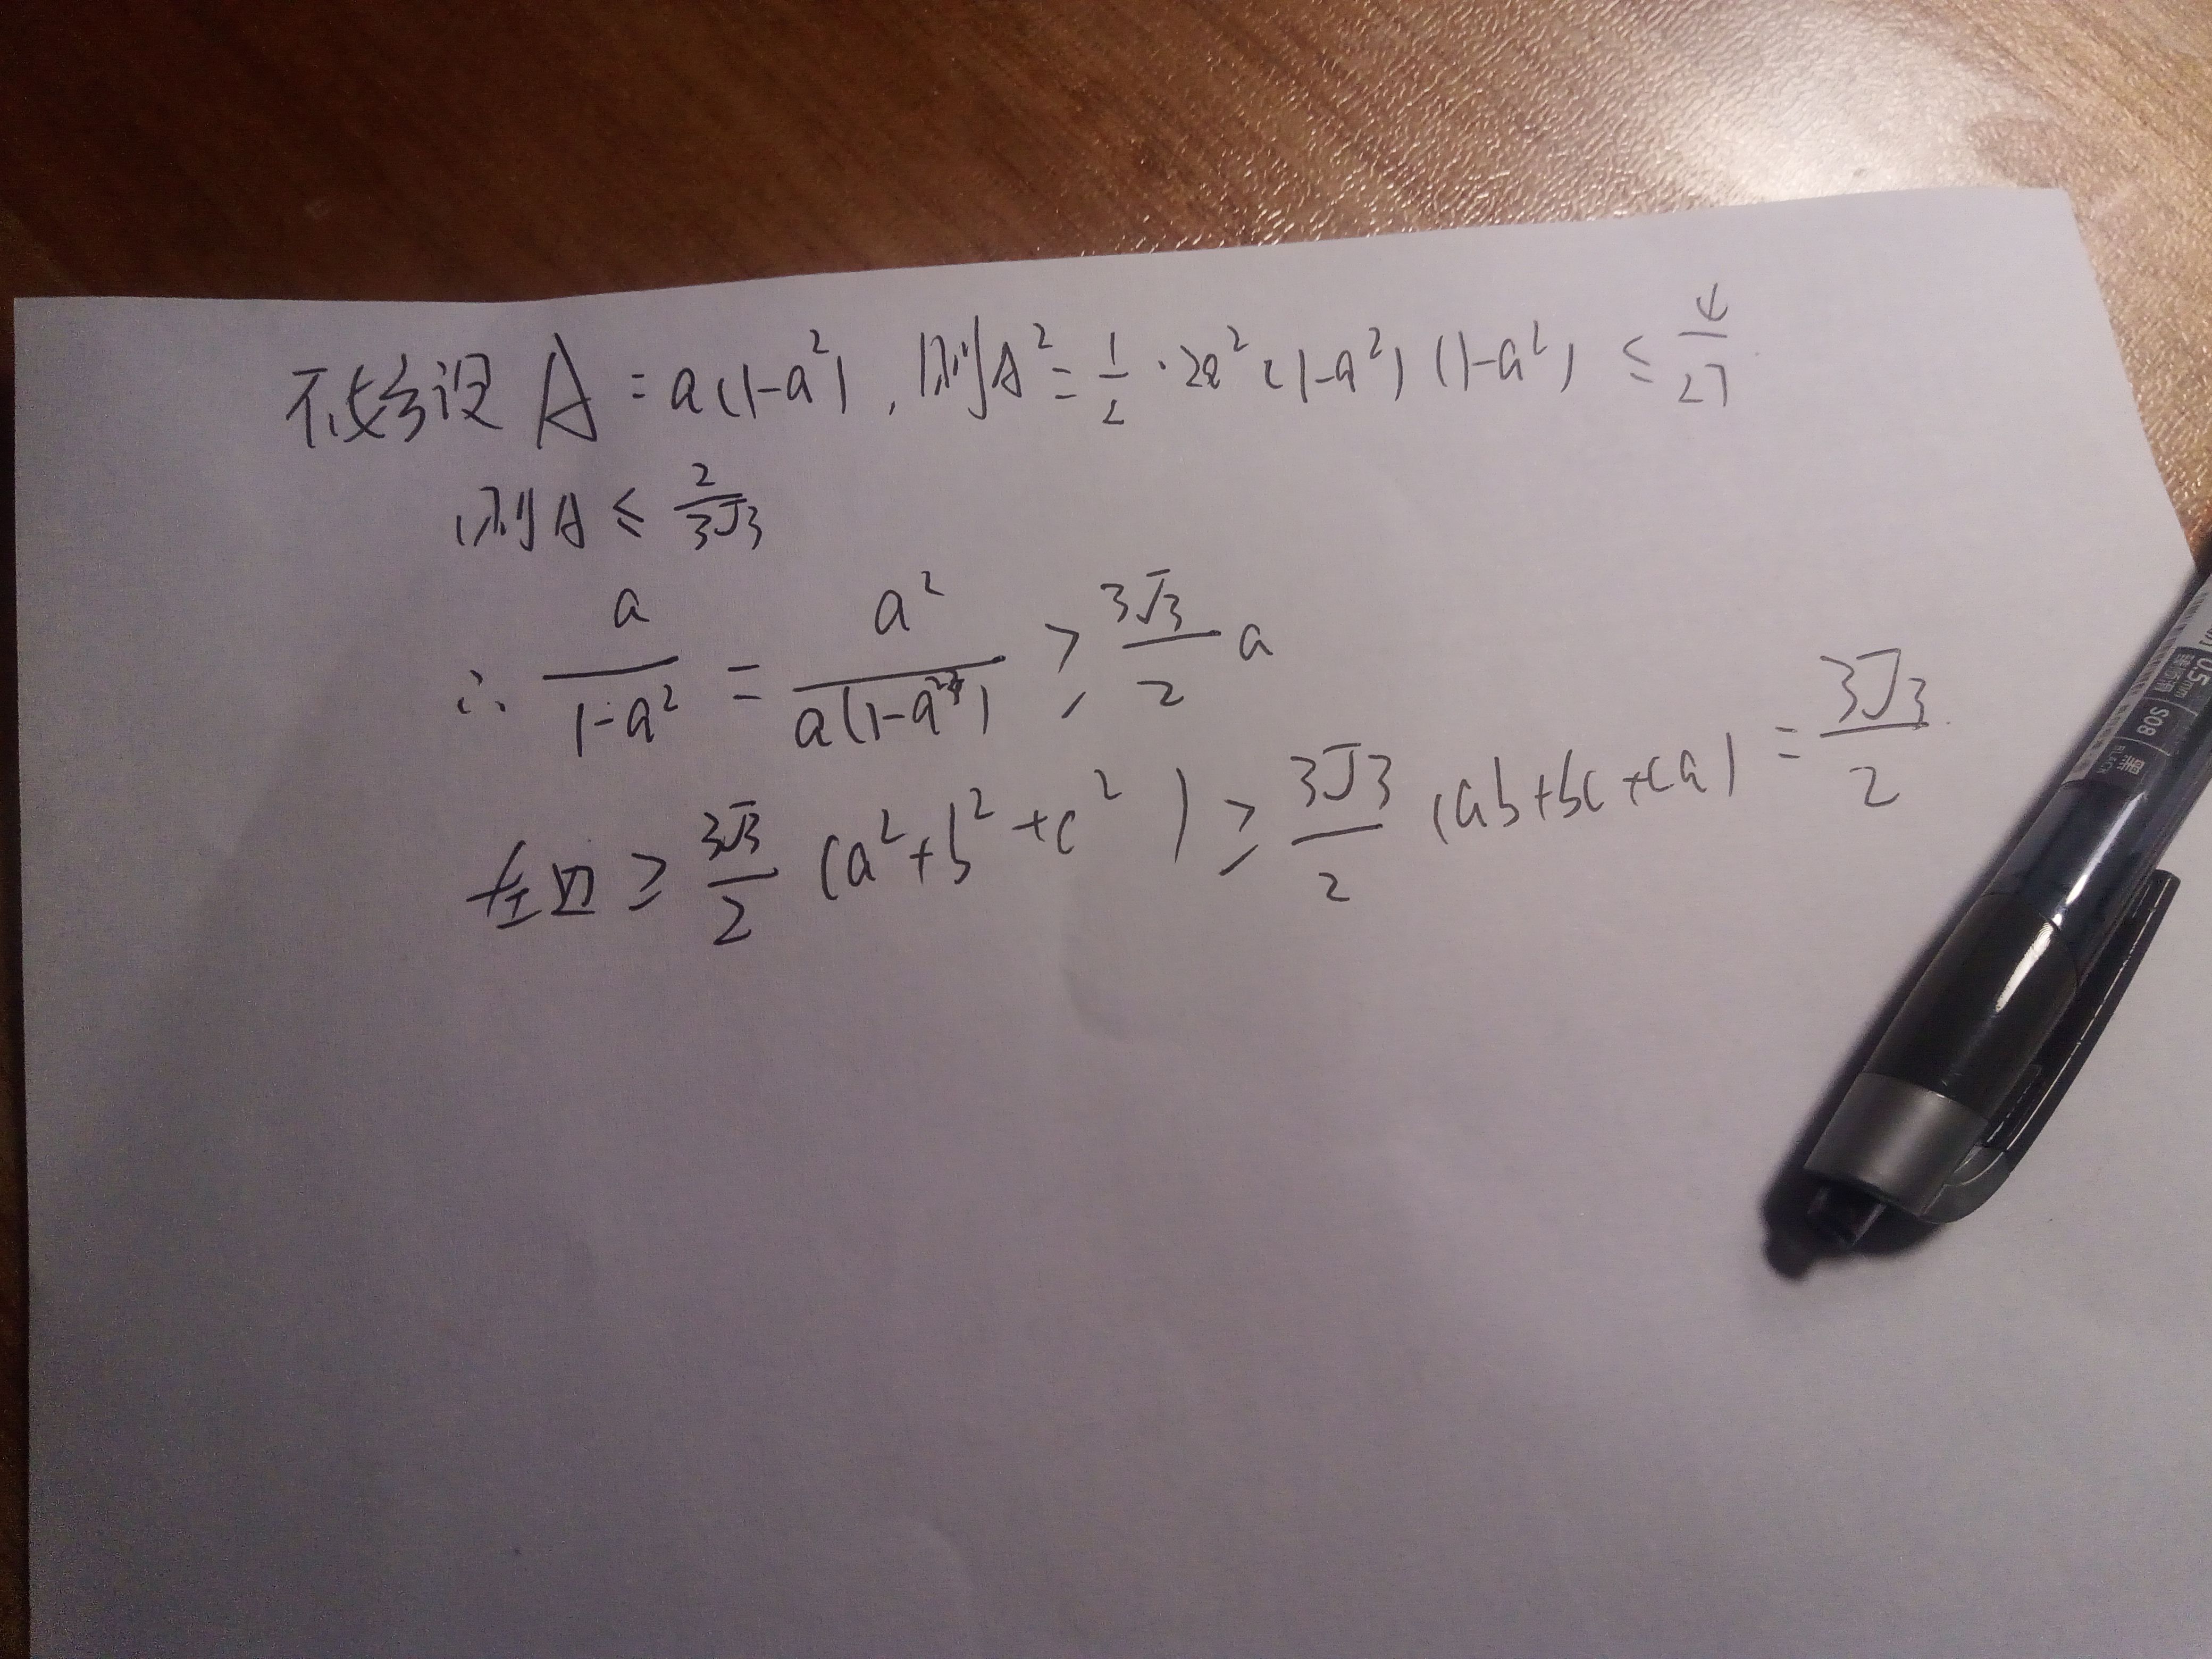 不妨设 A = a(1-a²), 则A² = 1/2 · 2a²(1-a²)(1-a²) ≤ 4/27
则A ≤ 2/3√3
∴ a/1-a² = a²/a(1-a²) ≥ 3√3/2 a
左边 ≥ 3√3/2 (a²+b²+c²) ≥ 3√3/2 (ab+bc+ca) = 3√3/2
0.5mm
S08 黑
BLACK